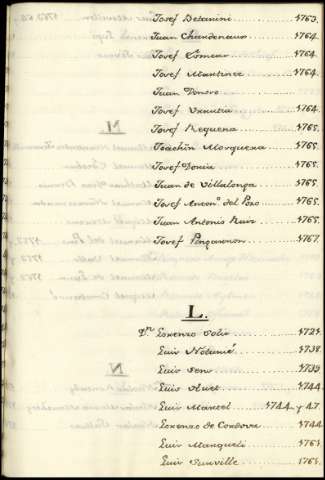 Josef Betanini 1763.
Juan Chardenaux 1764.
Josef Esmenr 1764.
Josef Martinez 1764.
Juan
Josef Urrutia 1764.
Josef Requena 1765.
Joachin Morquera 1765.
Josef 1765.
Juan de Villalonga 1765.
Josef Anton.º del Pozo 1765.
Juan Antonio Ruiz 1765.
Josef Pongaronon 1767.
L.
Dn Lorenzo Solis 1724.
Luis 1738.
Luis 1739
Luis Huet 1744
Luis Marzel 1744. y 47.
Lorenzo de Cordova 1744
Luis Marqueli 1761.
Luis Surville 1761.